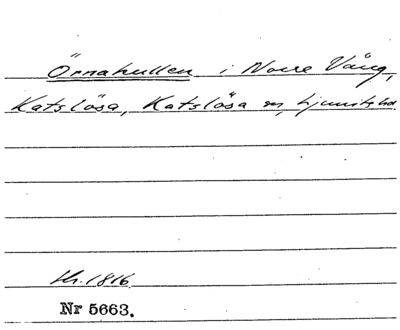 Örnahullen i Norre Vång,
Katslösa, Katslösa sn, Ljunits hd
1816
Nr 5663.